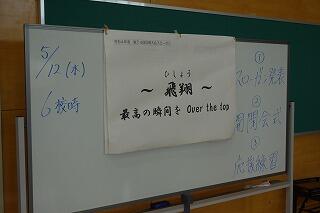 5/12(水)
6校時
ひしょう
～ 飛翔 ～
最高の瞬間を Over the top
①
スローガン発表
②
開閉会式
③
応援練習